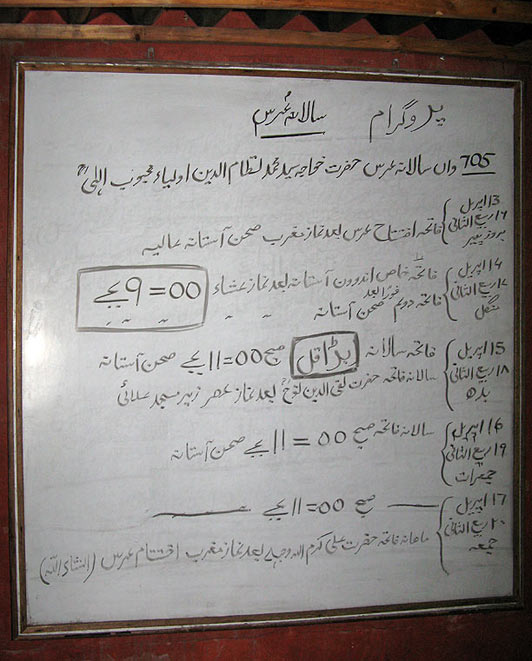 پروگرام سالانہ عرس
705 واں سالانہ عرس حضرت خواجہ سید محمد نظام الدین اولیاء محبوب الٰہیؒ
13 اپریل
۱۶ ربیع الثانی
بروز پیر
فاتحہ افتتاح عرس بعد نماز مغرب صحن آستانہ عالیہ
14 اپریل
۱۷ ربیع الثانی
منگل
فاتحہ خاص اندرون آستانہ بعد نماز عشاء 9=00 بجے
فاتحہ دوئم فوراً بعد صحن آستانہ " " "
15 اپریل
۱۸ ربیع الثانی
بدھ
فاتحہ سالانہ بڑا قل صبح 11=00 بجے صحن آستانہ
سالانہ فاتحہ حضرت تقی الدین نوحؒ بعد نماز عصر زیر مسجد علائی
16 اپریل
۱۹ ربیع الثانی
جمعرات
سالانہ فاتحہ صبح 11=00 بجے صحن آستانہ
17 اپریل
۲۰ ربیع الثانی
جمعہ
صبح 11=00 بجے
ماہانہ فاتحہ حضرت علی کرم اللہ وجہہ بعد نماز مغرب اختتام عرس (انشاء اللہ)